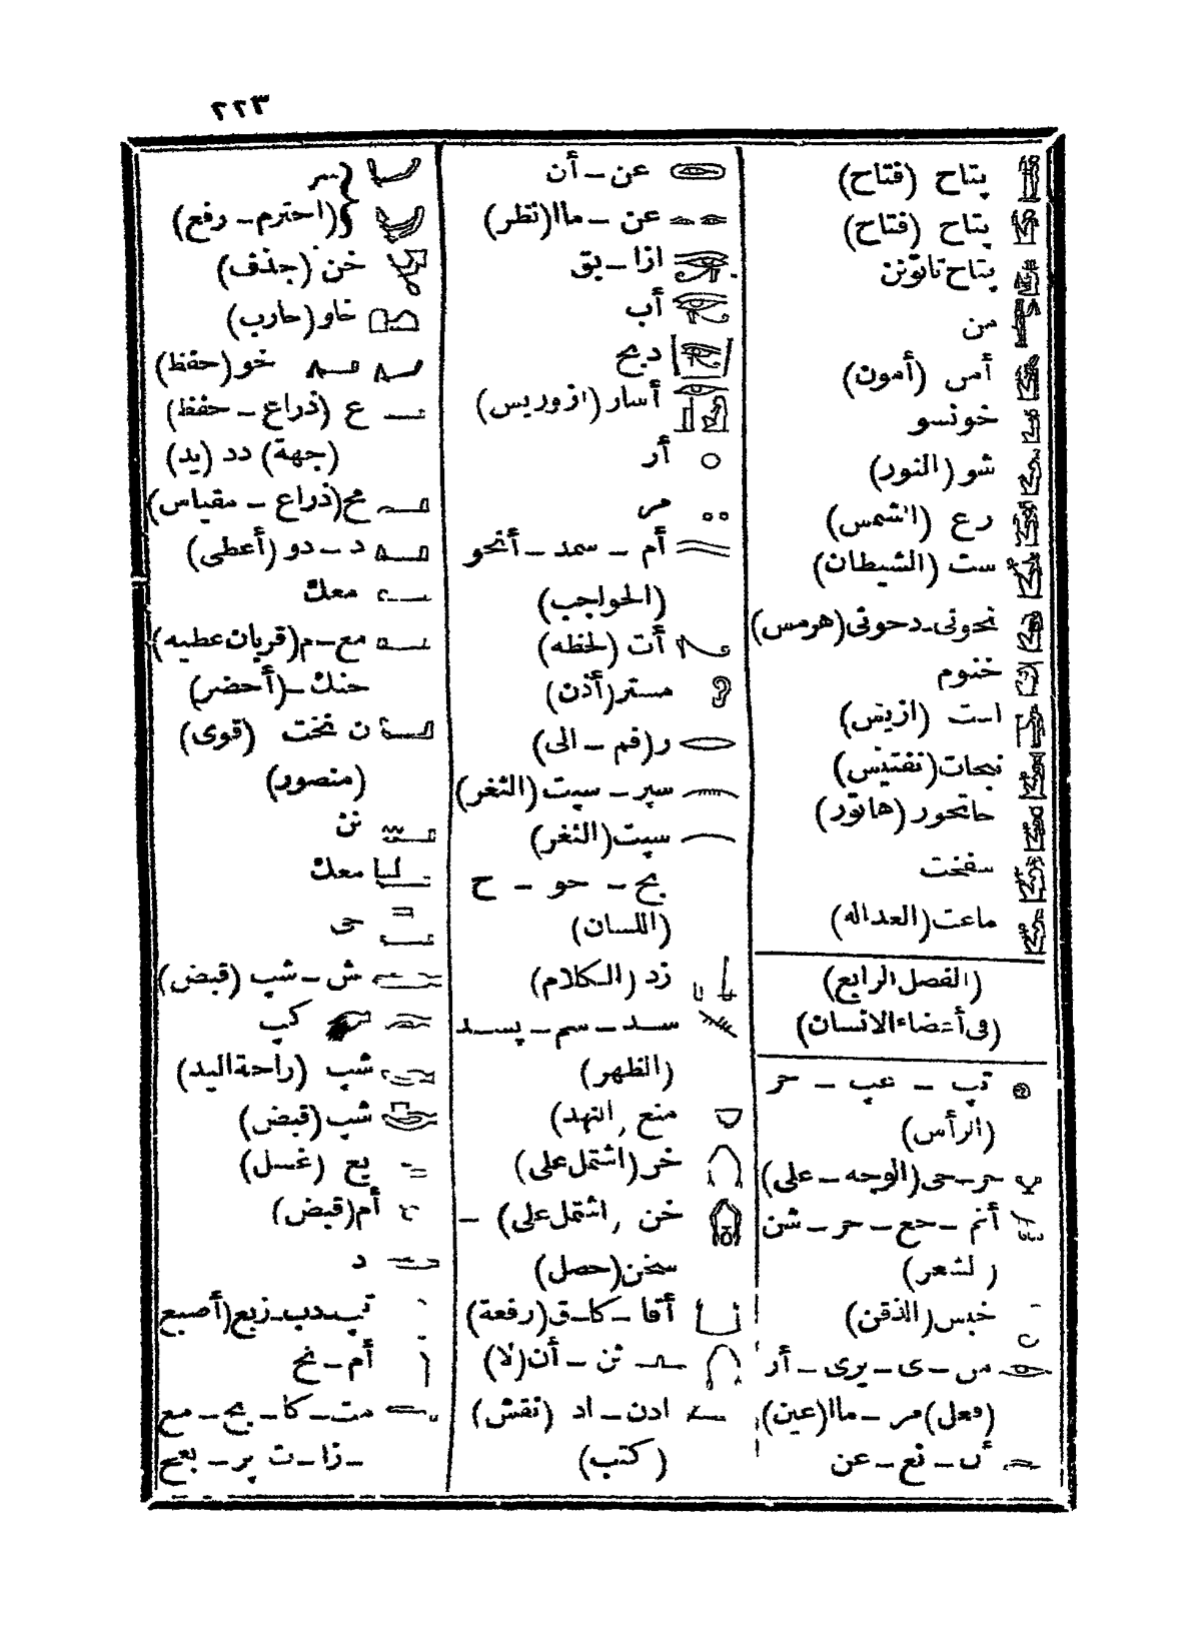 ٢٢٣
پتاح (فتاح)
پتاح (فتاح)
پتاح تاتونن
من
أمن (أمون)
خونسو
شو (النور)
رع (الشمس)
ست (الشيطان)
تحوتى-دحوتى (هرمس)
خنوم
است (ازيس)
نبحات (نفتيس)
حاتحور (هاتور)
سفخت
ماعت (العداله)
(الفصل الرابع)
(فى أعضاء الانسان)
تپ - عپ - حر
(الرأس)
حر-حى (الوجه - على)
أنم - حع - حر - شن
(لشعر)
خبس (الذقن)
من - ى - يرى - أر
(فعل) مر - ماا (عين)
أن - نع - عن
عن - أن
عن - ماا (نظر)
ازا - بق
أب
دبح
أسار (ازوريس)
أر
مر
أم - سمد - أنحو
(الحواجب)
أت (لحظه)
مستر (أذن)
ر (فم - الى)
سپر - سپت (الثغر)
سپت (الثغر)
بح - حو - ح
(اللسان)
زد (الكلام)
سد - سم - پسد
(الظهر)
منع (النهد)
خر (اشتمل على)
خن (اشتمل على) -
سخن (حصل)
أقا - كا-ق (رفعة)
تن - أن (لا)
ادن - اد (نقش)
(كتب)
سر
(احترم - رفع)
خن (جذف)
خاو (حارب)
خو (حفظ)
ع (ذراع - حفظ)
(جهة) دد (يد)
مح (ذراع - مقياس)
د - دو (أعطى)
معك
مع-م (قربان عطيه)
حنك - (أحضر)
ن نخت (قوى)
(منصور)
نن
معك
حى
ش - شپ (قبض)
كپ
شپ (راحة اليد)
شپ (قبض)
يع (غسل)
أم (قبض)
د
تپ-دب-زبع (أصبع
أم - نح
مت - كا - بح - مع
- زا - ت پر - بعح